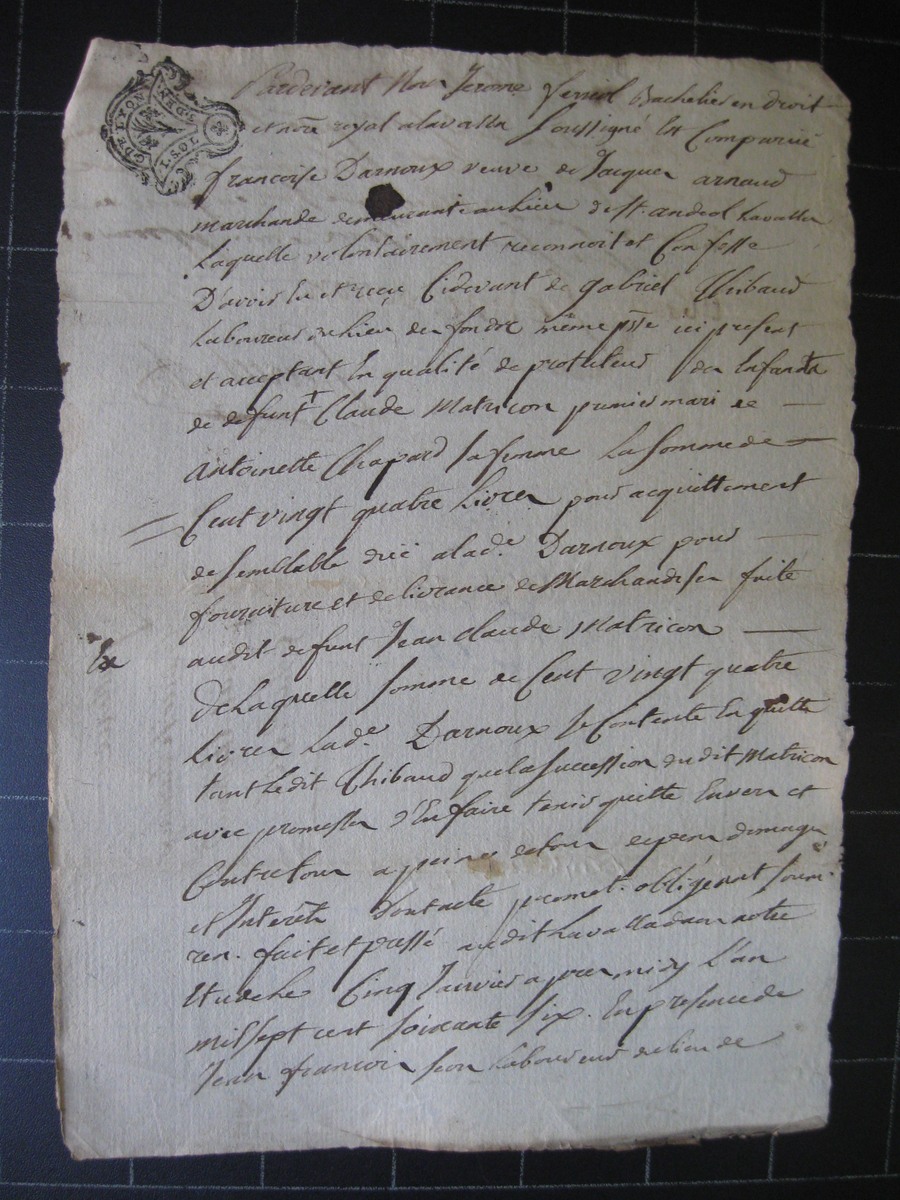 G. DE LYON
1. SOL
Pardevant Nous Jerome ferriol Bachelier en droit
et nore royal a lavalla Soussigné Est Comparüe
francoise Darnoux veuve de Jacques arnaud
marchande demeurante au lieu de St. andeol Lavalla
Laquelle volontairement reconnoit et Confesse
D'avoir Eu et reçu Cidevant de gabriel Thibaud
Laboureur du lieu de fondre même psse ici present
et acceptant En qualité de protuteur des Enfants
de defunt Claude Matricon premier mari de
antoinette Chapard sa femme La somme de
Cent vingt quatre Livres pour acquittement
de semblable düe a lade. Darnoux pour
fourniture et delivrance de Marchandises faite
audit defunt Jean Claude Matricon
Ex
De Laquelle somme de Cent vingt quatre
Livres Lade. Darnoux se Contente En quitte
tant Ledit Thibaud que la succession dudit Matricon
avec promesse d'En faire tenir quitte Envers et
Contre tous a peine de tous depens domages
et Interêts Dont acte promet. obligeant soum.
ren. fait et passé audit Lavalla dans notre
Etude le Cinq Janvier apres midy L'an
mil sept cent soixante six. En presence de
Jean francois Laboureur du lieu de